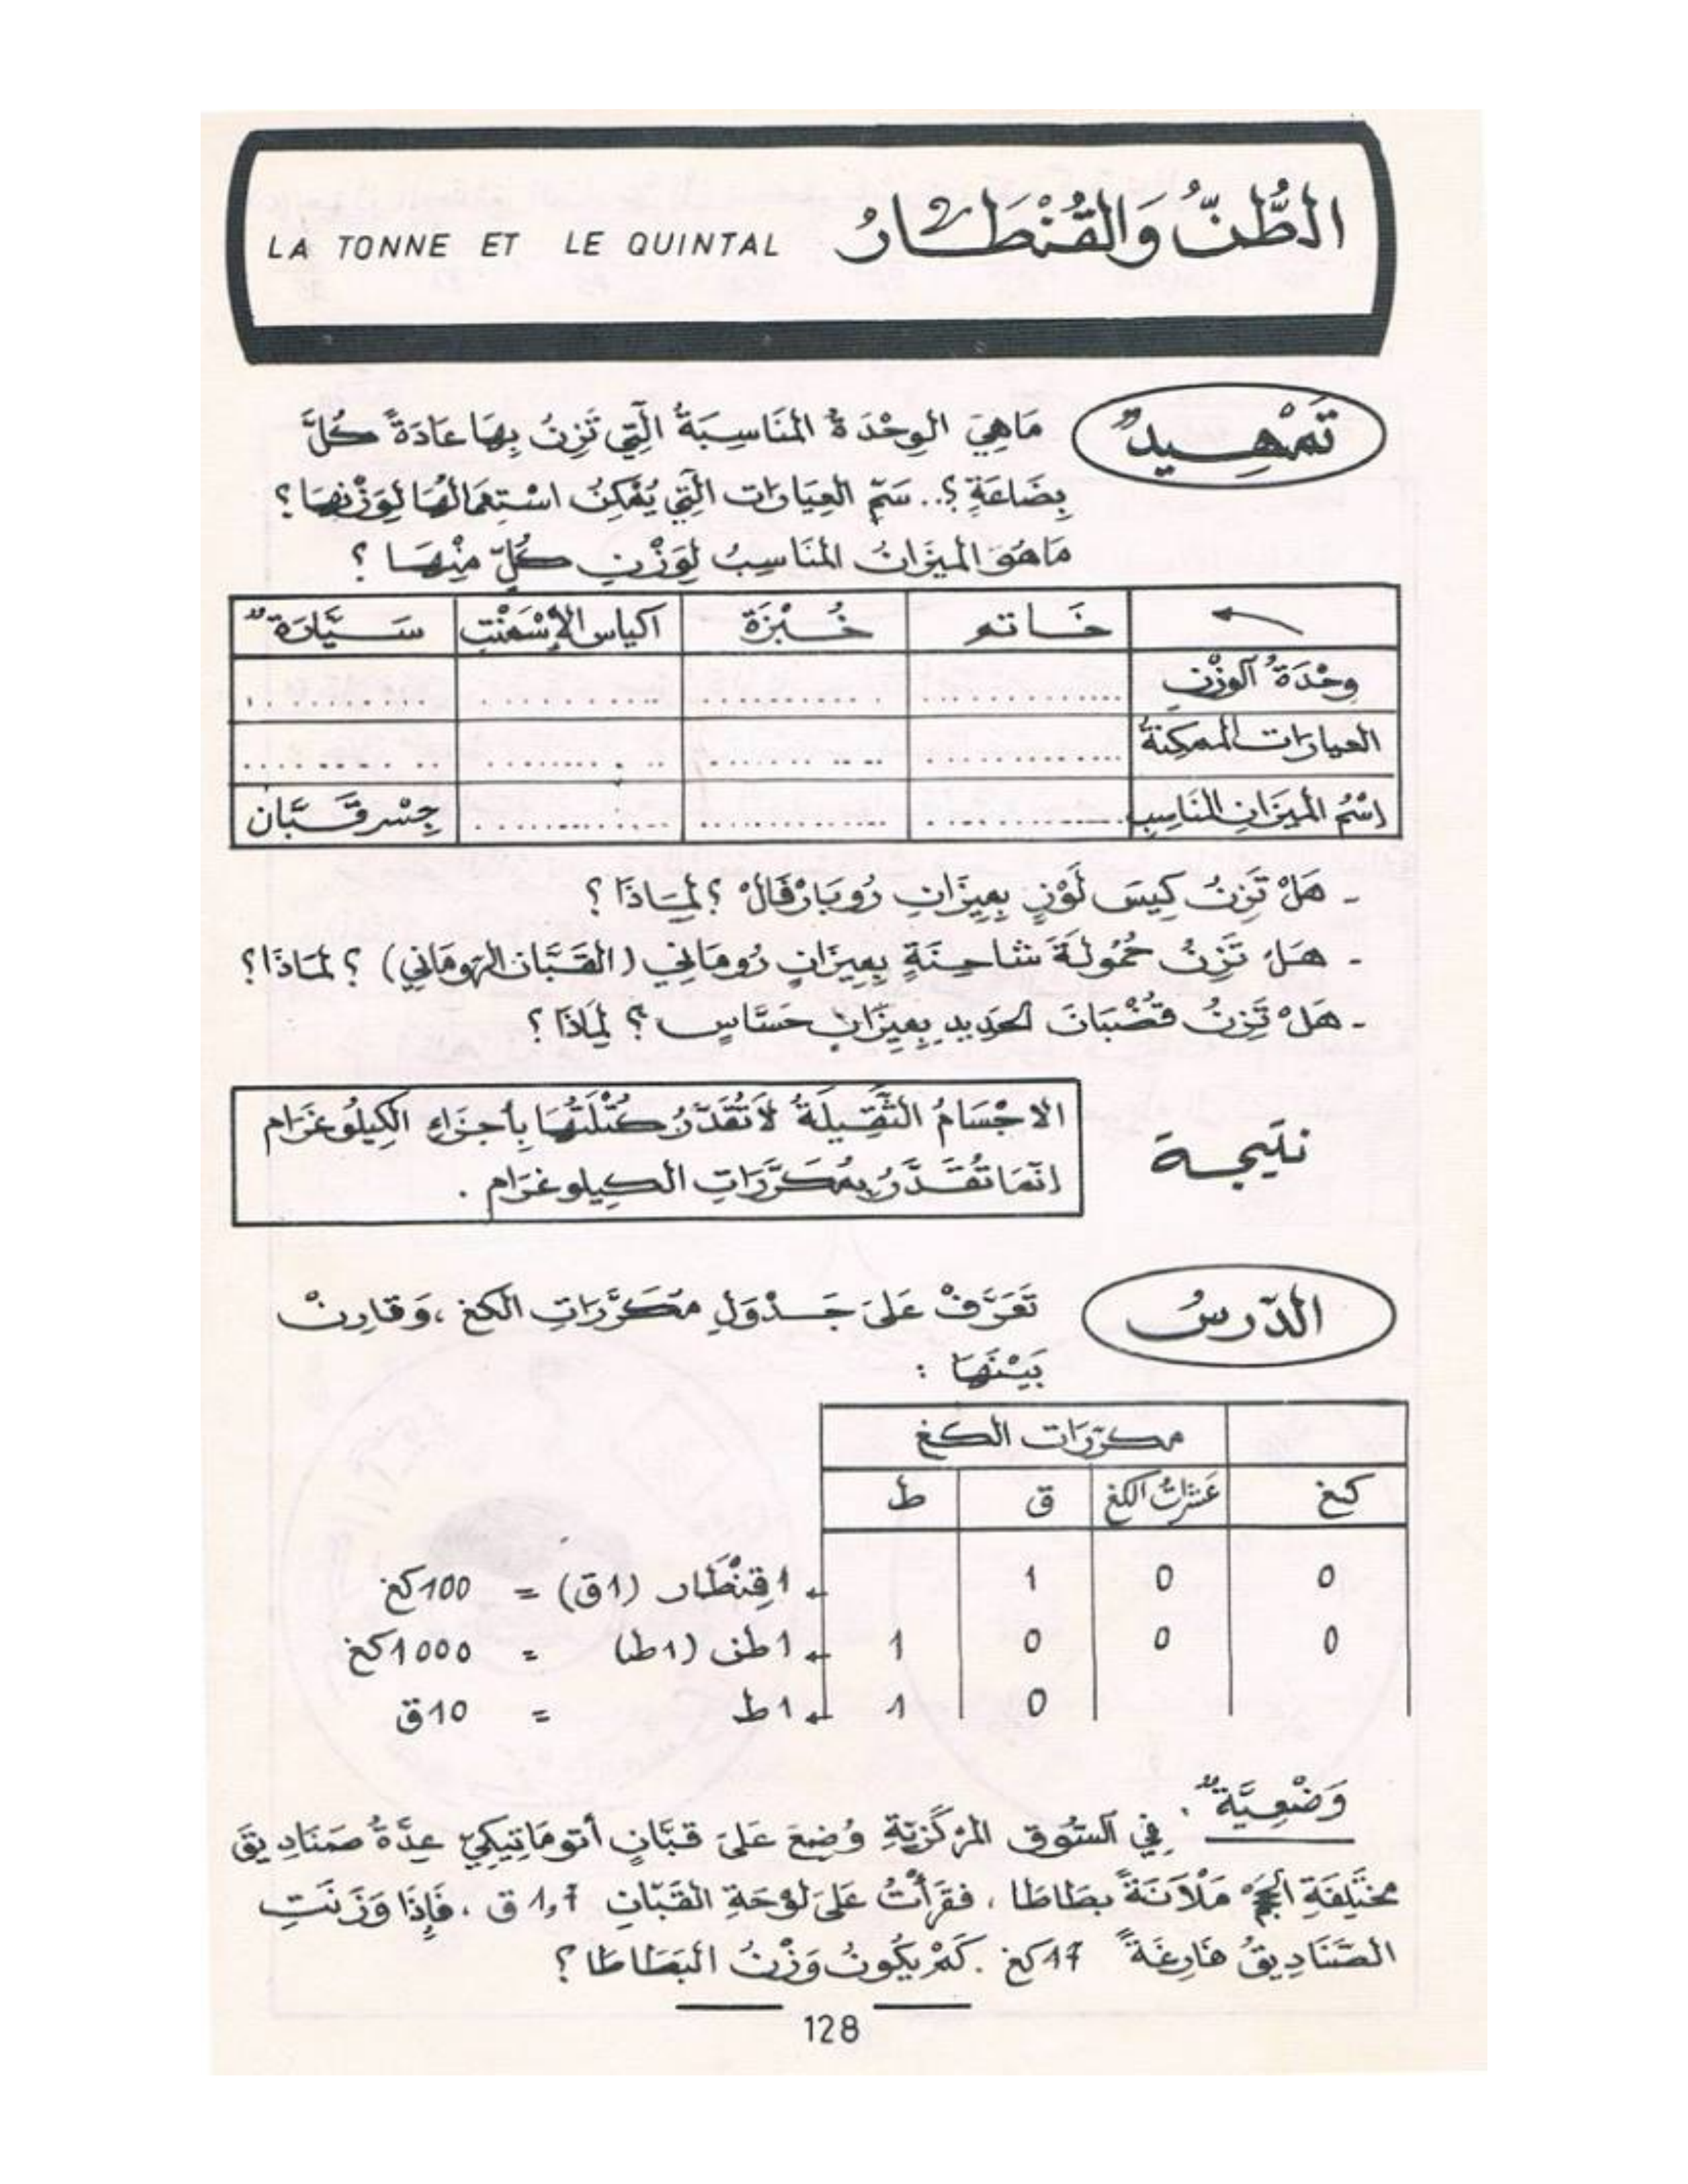 الطُّنُّ وَالقُنْطَارُ LA TONNE ET LE QUINTAL
تَمْهِيدٌ
مَاهِيَ الوِحْدَةُ المُنَاسِبَةُ الَّتِي تَزِنُ بِهَا عَادَةً كُلَّ
بِضَاعَةٍ؟.. سَمِّ العِيَارَات الَّتِي يُمْكِنُ اسْتِعْمَالُهَا لِوَزْنِهَا؟
مَاهُوَ المِيزَانُ المُنَاسِبُ لِوَزْنِ كُلٍّ مِنْهَا ؟
خَاتم خُبْزَة اكياس الإسْمَنْتِ سَيَّارَةٌ
وِحْدَةُ الوَزْنِ
العيارَات الممكِنةُ
اسْمُ المِيزَانِ المُنَاسِبِ جِسْر قَبَّان
- هَلْ تَزِنُ كِيسَ لَوْزٍ بِمِيزَانِ رُوبَارْفَالْ ؟ لِمَاذَا ؟
- هَلْ تَزِنُ حُمُولَةَ شَاحِنَةٍ بِمِيزَانٍ رُومَانِي (القَبَّان الرُّومَانِي) ؟ لِمَاذَا؟
- هَلْ تَزِنُ قُضْبَانَ الحَدِيدِ بِمِيزَانٍ حَسَّاسٍ ؟ لِمَاذَا ؟
نتيجة
الاجْسَامُ الثَّقِيلَةُ لاَ تُقَدَّرُ كُتْلَتُهَا بِأَجزَاءِ الكِيلُوغرَام
انَّمَا تُقَدَّرُ بِمُكَرَّرَاتِ الكِيلوغرَام .
الدَّرسُ
تَعَرَّفْ عَلَى جَدْوَلِ مُكَرَّرَاتِ الكغ ، وَقَارِنْ
بَيْنَهَا :
مكرّرَات الكغ
كغ عَشَرَاتُ الكغ ق ط
0 0 1 1 قِنْطَار (1ق) = 100كغ
0 0 0 1 1 طن (1ط) = 1000كغ
0 1 1ط = 10ق
وَضْعِيَّةٌ . فِي السُّوقِ المَرْكَزِيَّةِ وُضِعَ عَلَى قَبَّانٍ أُتومَاتِيكِيّ عِدَّةُ صَنَادِيقَ
مُخْتَلِفَةِ الحَجْمِ مَلْآنَةً بطَاطَا ، فقَرَأْتُ عَلَى لَوْحَةِ القَبَّانِ 1,7 ق ، فَإِذَا وَزَنَتِ
الصَّنَادِيقُ فَارِغَةً 17كغ . كَمْ يَكُونُ وَزْنُ البَطَاطَا ؟
128